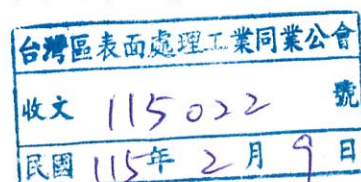 台灣區表面處理工業同業公會
收文 115022 號
民國 115年 2月 9日